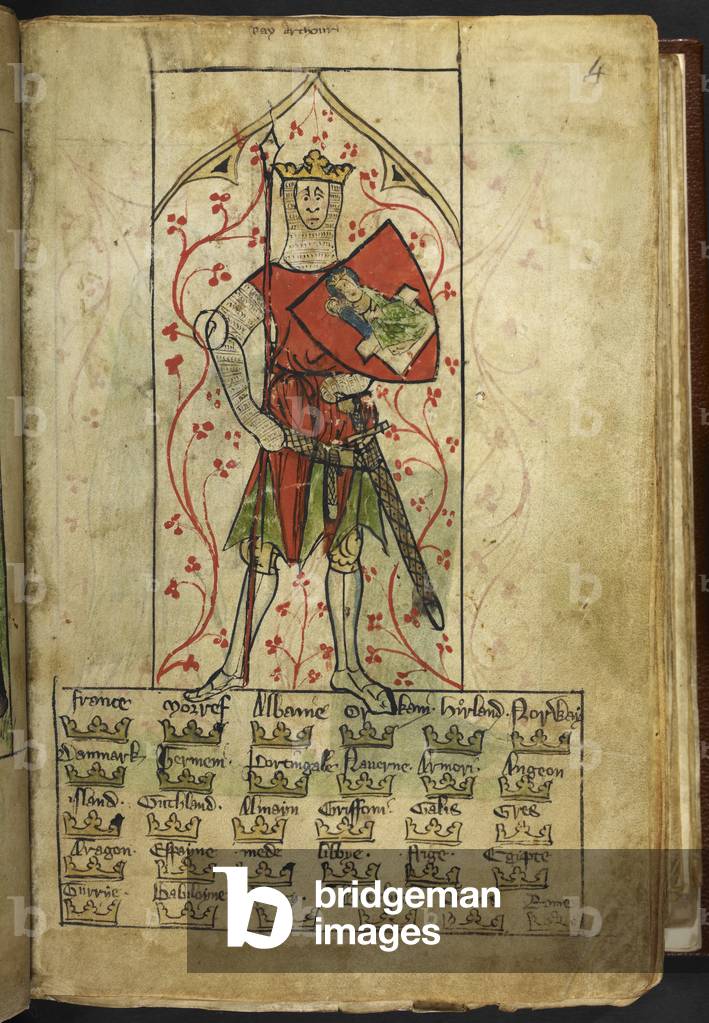 Ray Arthour
4
france Norref Albanie Orkani Hirland Norway
Danmark Germeni Portingale Naverne Armori Angeon
island Guthland Almayn Griffoni Galis Gres
Aragon Espayne mede libye frige Egipte
Surrye Babiloyne Rome
bridgeman
images